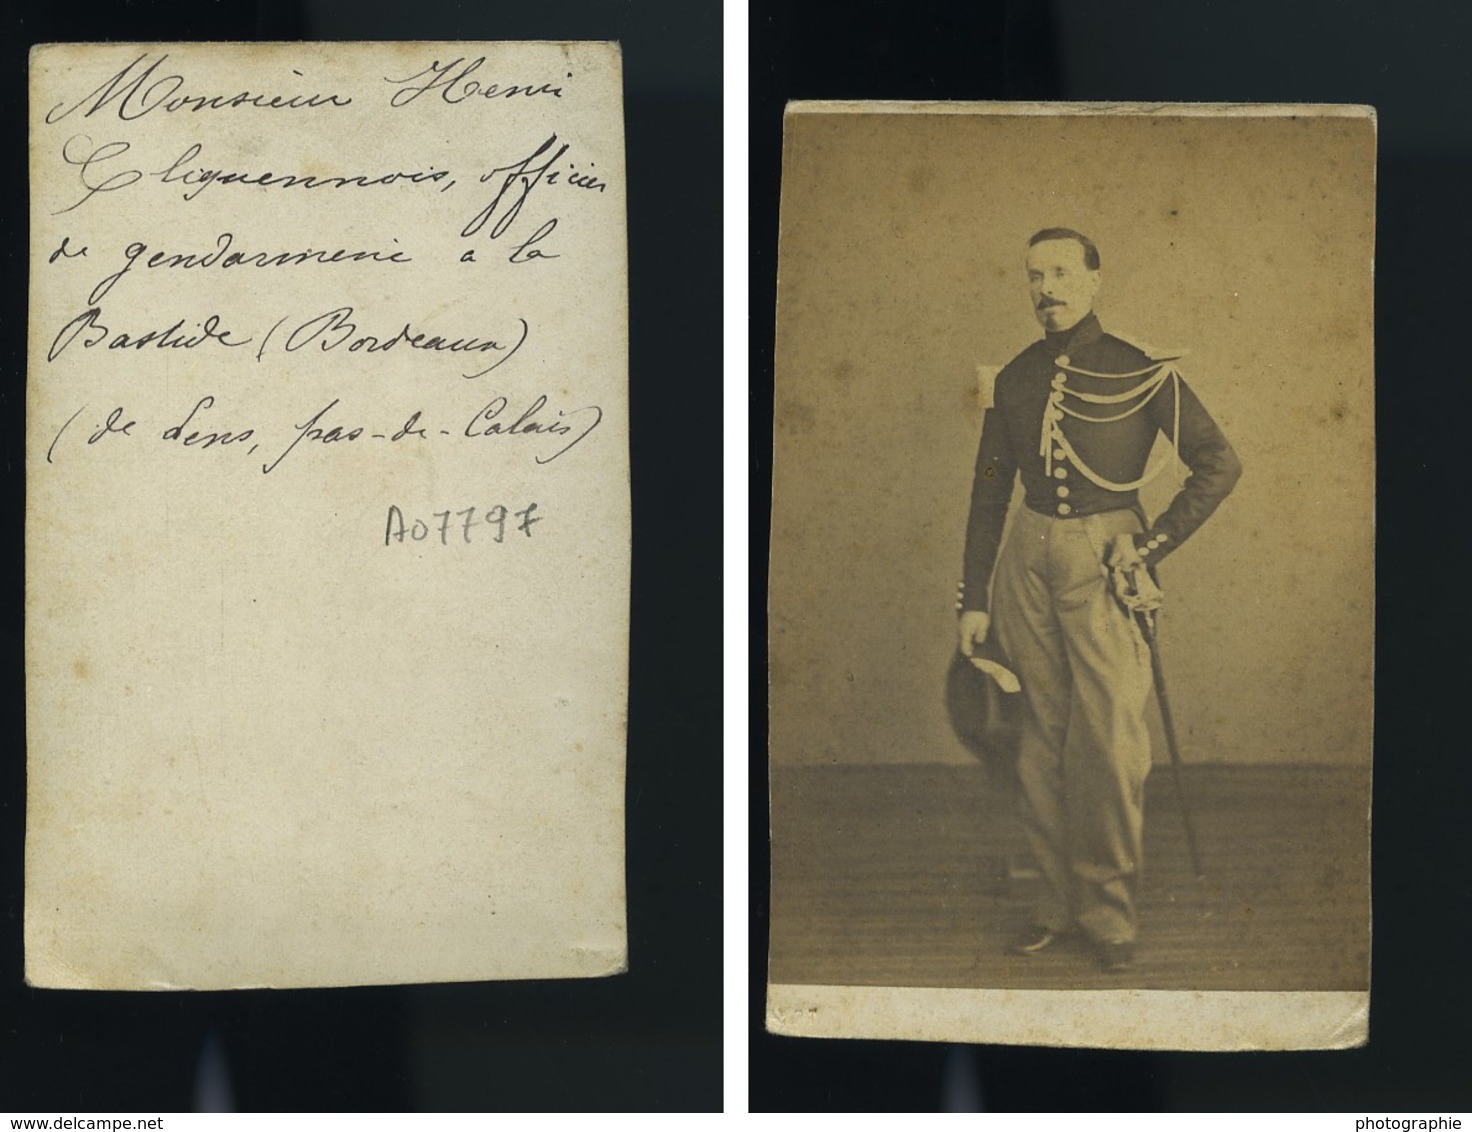 Monsieur Henri
Cliquennois, officier
de gendarmerie a la
Bastide (Bordeaux)
(de Lens, pas-de-Calais)
A07797
www.delcampe.net
photographie